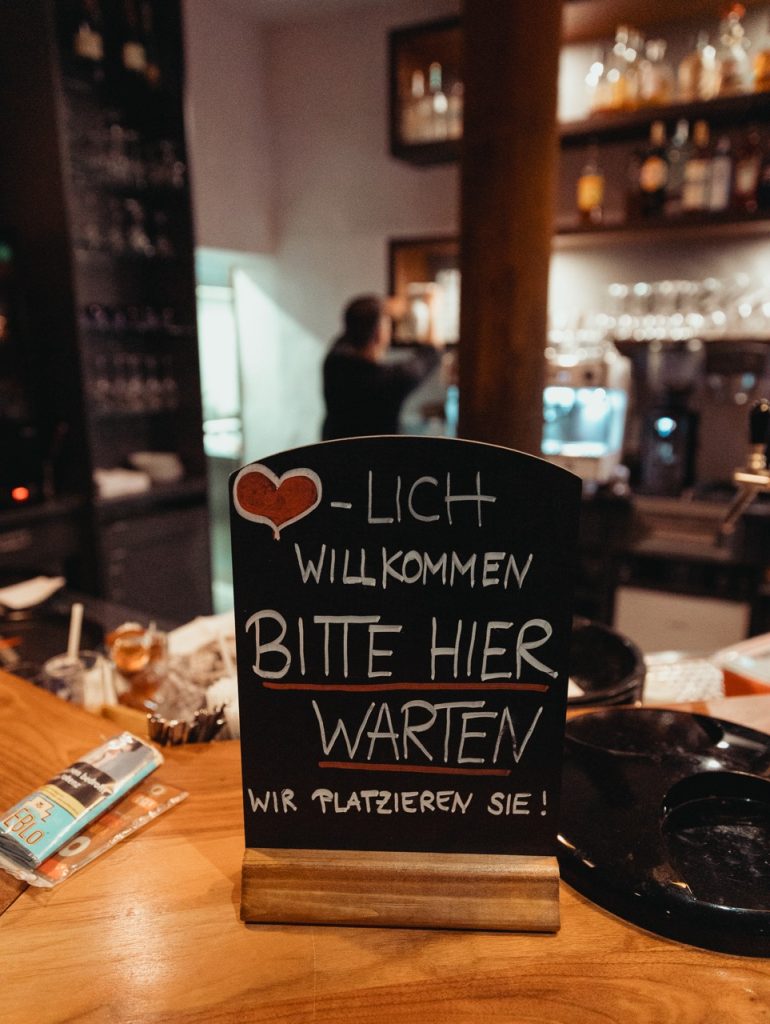 ❤-LICH
WILLKOMMEN
BITTE HIER
WARTEN
WIR PLATZIEREN SIE!
EBLO